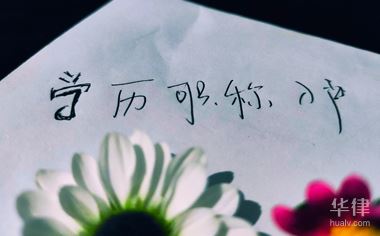 学历职称评
华律
hualv.com